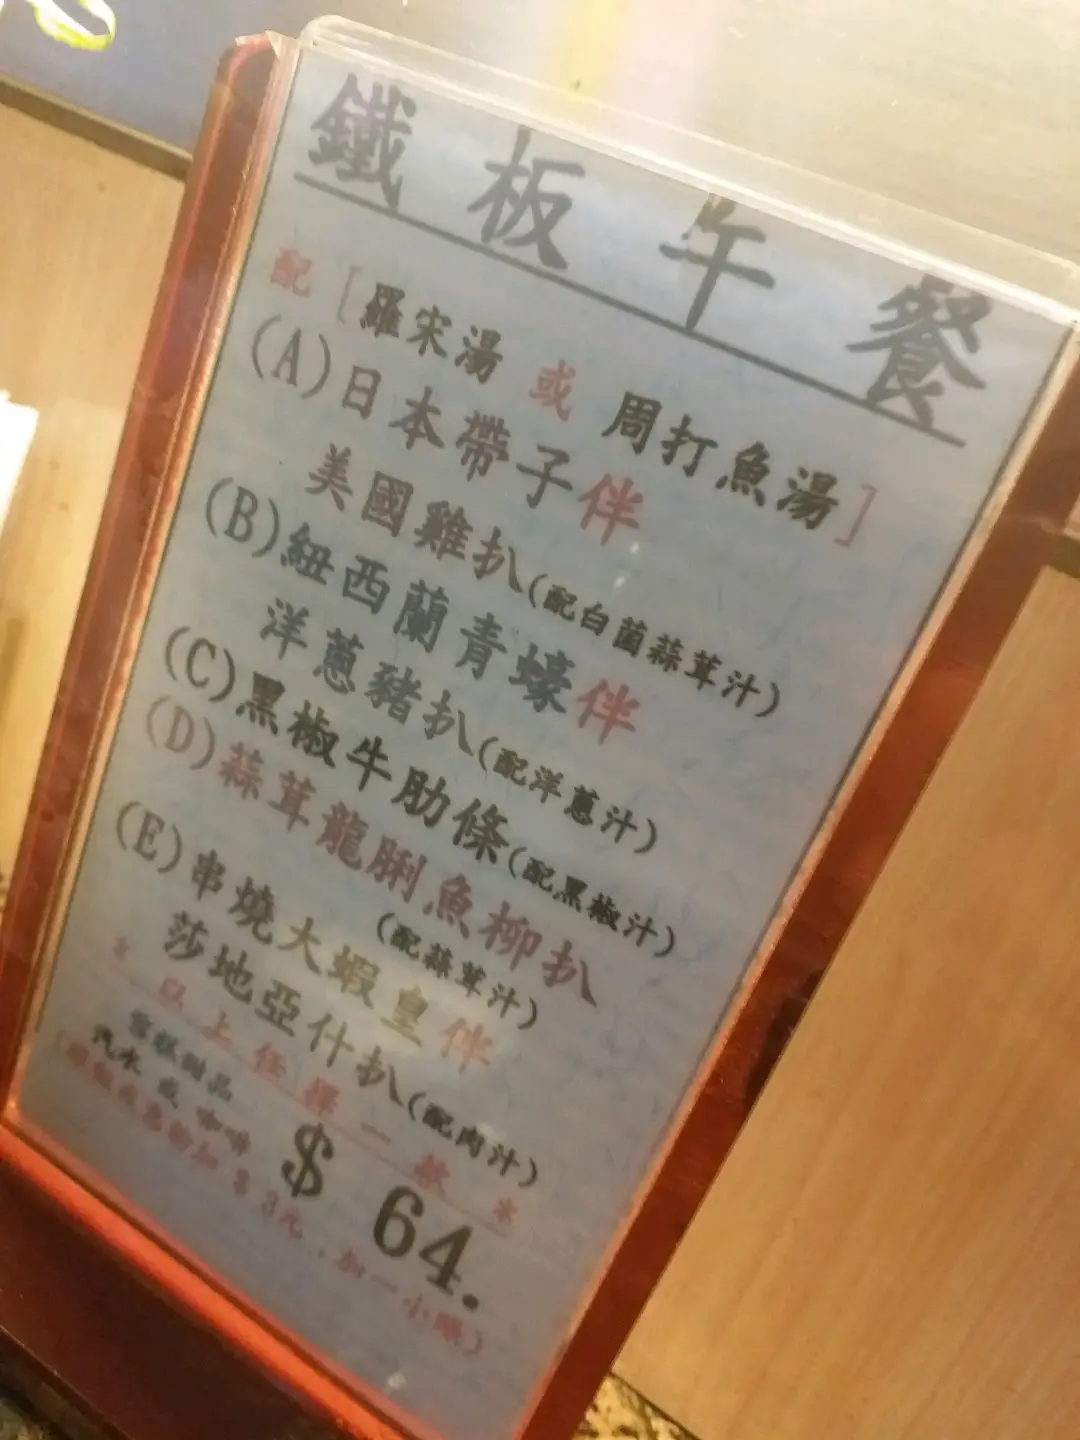 鐵板午餐
配[羅宋湯 或 周打魚湯]
(A)日本帶子伴
美國雞扒(配白菌蒜茸汁)
(B)紐西蘭青蠔伴
洋蔥豬扒(配洋蔥汁)
(C)黑椒牛肋條(配黑椒汁)
(D)蒜茸龍脷魚柳扒
(配蒜茸汁)
(E)串燒大蝦皇伴
莎地亞什扒(配肉汁)
以上任擇一款
甜品
汽水 或 咖啡
$ 64.
加 $ 3元